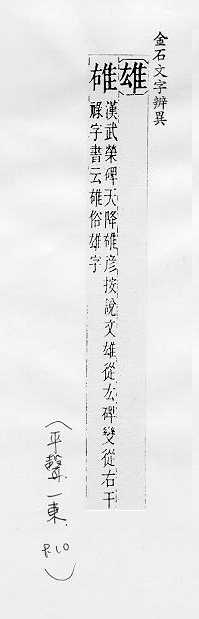 金石文字辨異
雄
䧺
漢武榮碑天降䧺彦按說文雄從厷碑變從右干
祿字書云䧺俗雄字
(平聲一東 P.10)